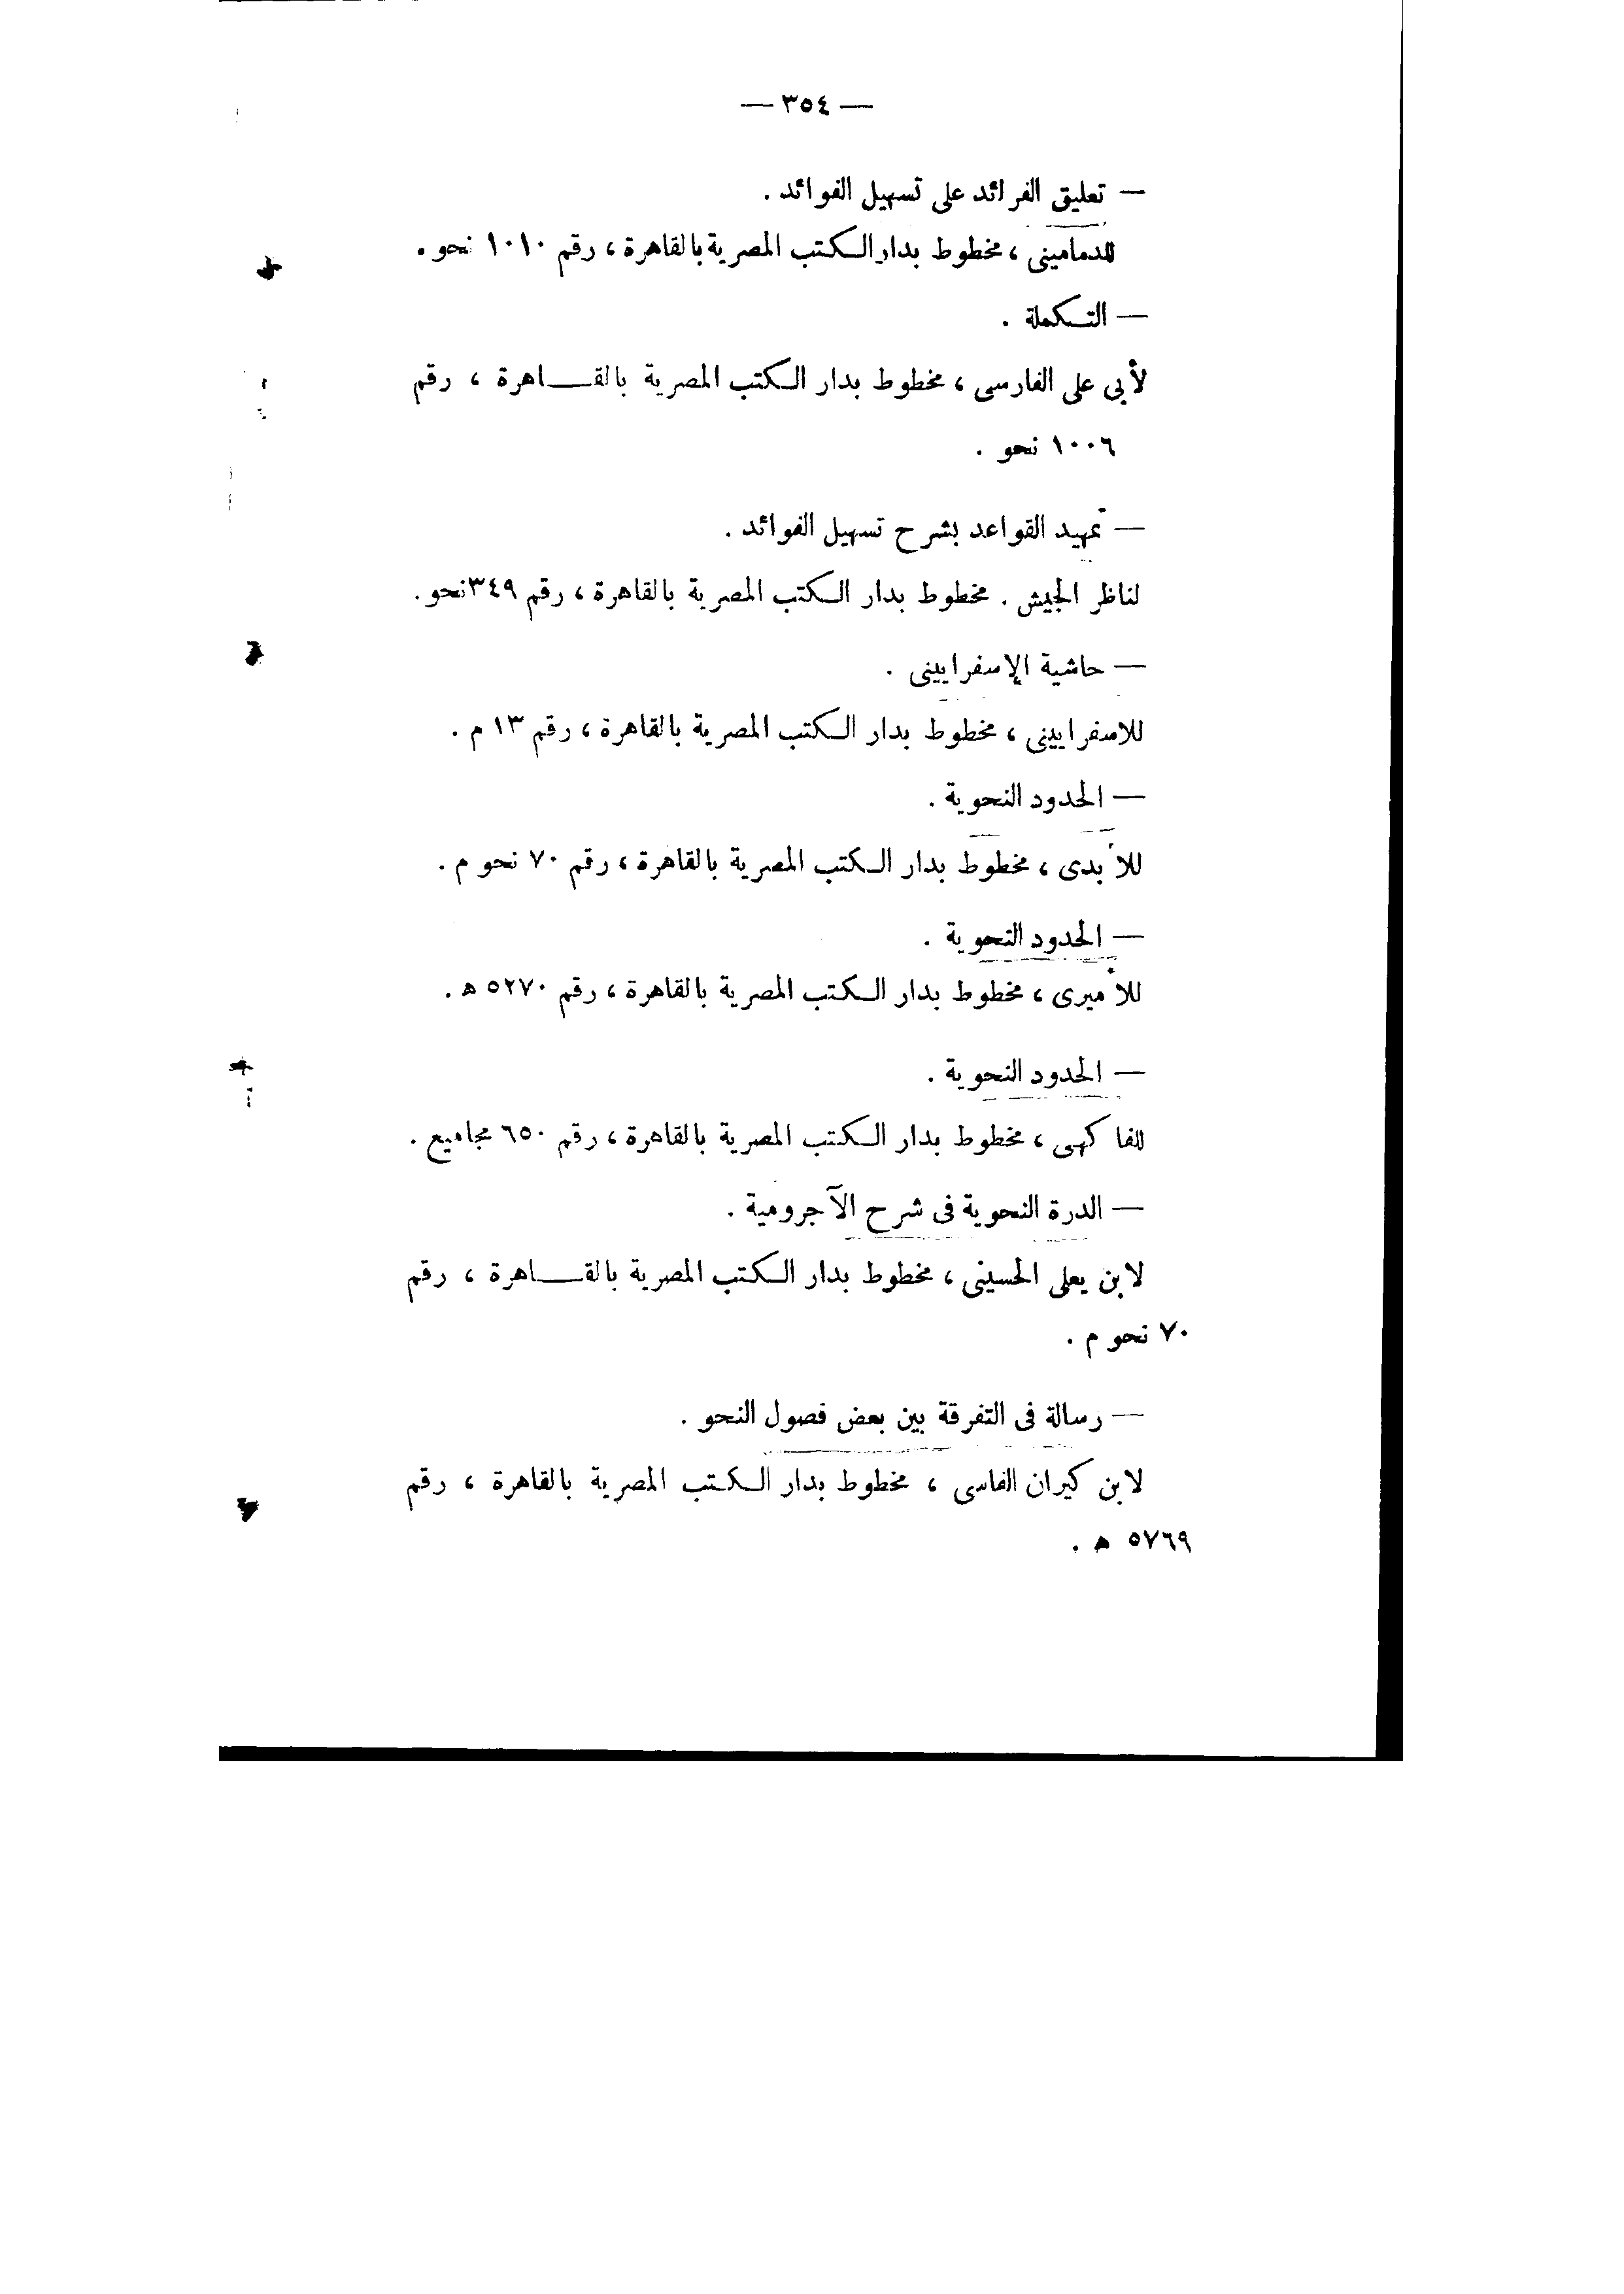 — ٣٥٤ —
— تعليق الفرائد على تسهيل الفوائد .
للدمامينى ، مخطوط بدار الكتب المصرية بالقاهرة ، رقم ١٠١٠ نحو .
— التكملة .
لأبى على الفارسى ، مخطوط بدار الكتب المصرية بالقاهرة ، رقم
١٠٠٦ نحو .
— تمهيد القواعد بشرح تسهيل الفوائد .
لناظر الجيش . مخطوط بدار الكتب المصرية بالقاهرة ، رقم ٣٤٩ نحو .
— حاشية الإسفرايينى .
للاسفرايينى ، مخطوط بدار الكتب المصرية بالقاهرة ، رقم ١٣ م .
— الحدود النحوية .
للأبدى ، مخطوط بدار الكتب المصرية بالقاهرة ، رقم ٧٠ نحو م .
— الحدود النحوية .
للأميرى ، مخطوط بدار الكتب المصرية بالقاهرة ، رقم ٥٢٧٠ ه .
— الحدود النحوية .
للفاكهى ، مخطوط بدار الكتب المصرية بالقاهرة ، رقم ٦٥٠ مجاميع .
— الدرة النحوية فى شرح الآجرومية .
لابن يعلى الحسينى ، مخطوط بدار الكتب المصرية بالقاهرة ، رقم
٧٠ نحو م .
— رسالة فى التفرقة بين بعض فصول النحو .
لابن كيران الفاسى ، مخطوط بدار الكتب المصرية بالقاهرة ، رقم
٥٧٦٩ ه .